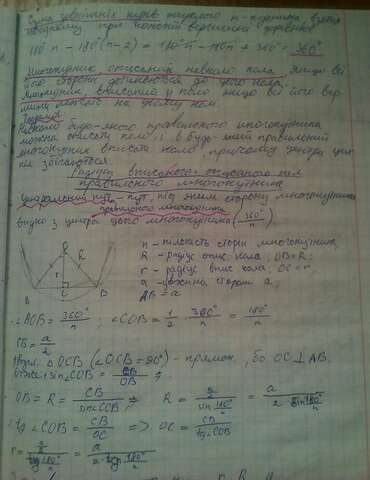 Сума зовнішніх кутів опуклого n-кутника, взятих
по одному при кожній вершині, дорівнює
180°n − 180°(n−2) = 180°n − 180°n + 360° = 360°
Многокутник описаний навколо кола, якщо всі
його сторони дотикаються до цього кола.
Многокутник, вписаний у коло якщо всі його вер-
шини лежать на цьому колі.
Теорема
Навколо будь-якого правильного многокутника
можна описати коло і в будь-який правильний
многокутник вписати коло, причому центри цих
кіл збігаються.
Радіус вписаного описаного кіл
правильного многокутника
Центральний кут - кут, під яким сторону многокутника
правильного многокутника
видно з центра цього многокутника (360°/n)
n - кількість сторін многокутника
R - радіус опис. кола; OB = R;
r - радіус впис. кола; OC = r;
a - довжина сторони a;
AB = a
R R
r
C B
∠AOB = 360°/n ; ∠COB = 1/2 · 360°/n = 180°/n
CB = a/2
△OCB (∠OCB = 90°) - прямок., бо OC ⊥ AB
sin∠COB = CB/OB ;
OB = R = CB/sin∠COB ⇒ R = (a/2)/(sin 180°/n) = a/(2 sin 180°/n)
tg∠COB = CB/OC => OC = CB/tg∠COB
r = (a/2)/(tg 180°/n) = a/(2·tg 180°/n)